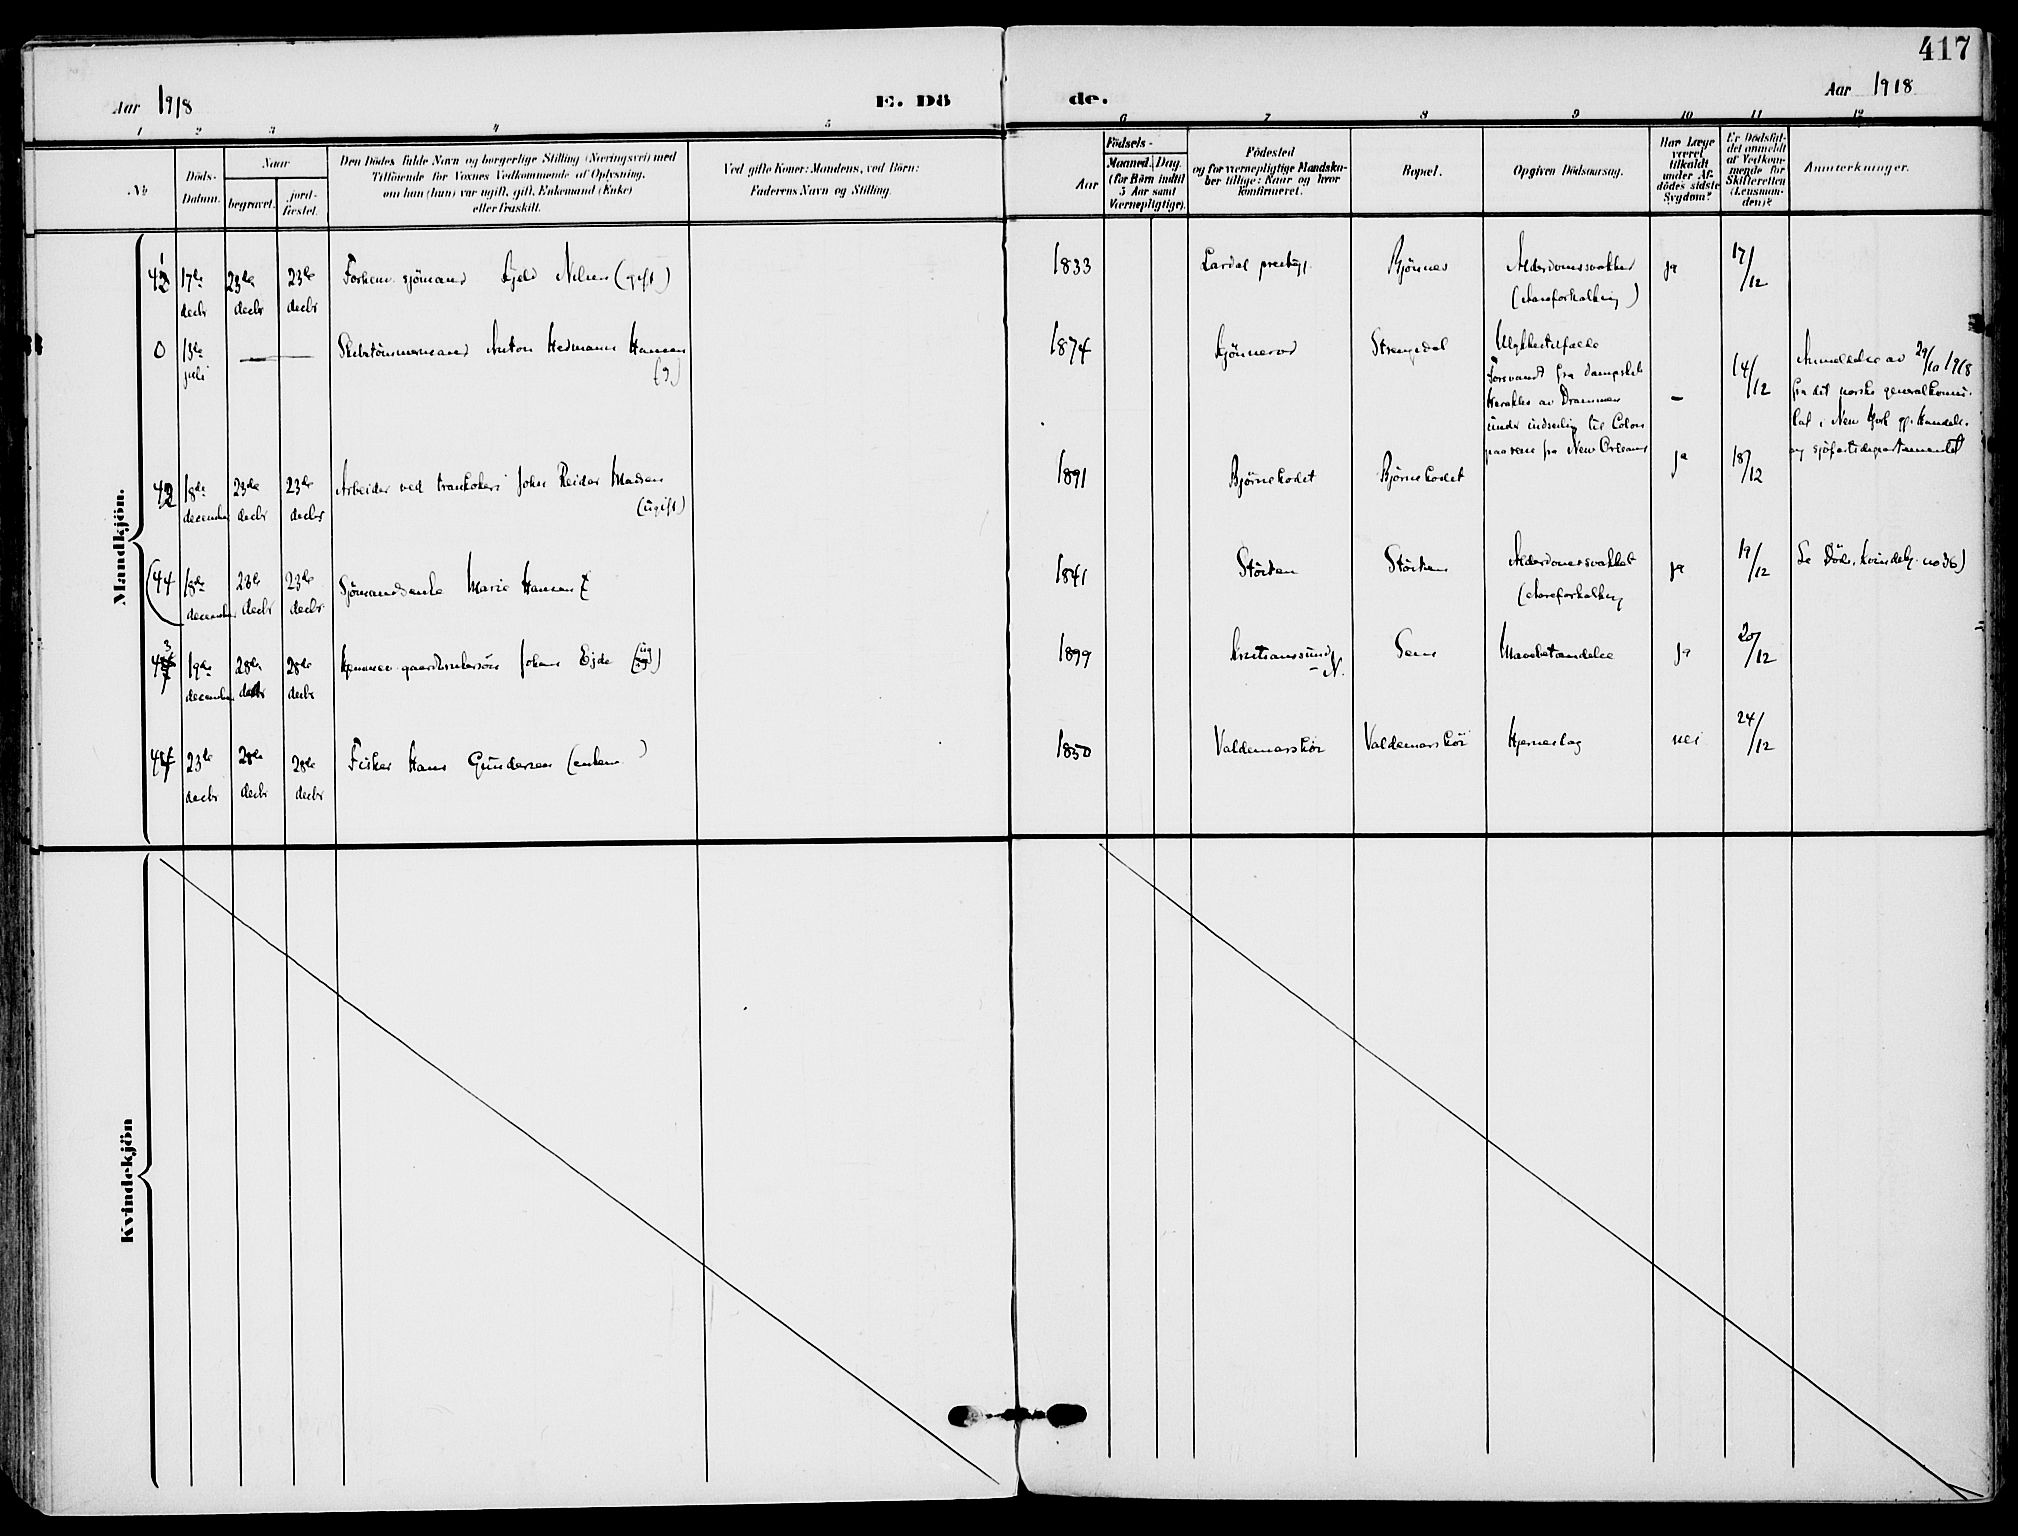 417
Aar 1918
E. Dö
de.
Aar 1918
1 2 3 4 5 6 7 8 9 10 11 12
№
Döds-
Datum.
Naar
begravet.
jord-
fæstet.
Den Dödes fulde Navn og borgerlige Stilling (Næringsvei) med
Tilföiende for Voxnes Vedkommende af Oplysning,
om han (hun) var ugift, gift, Enkemand (Enke)
eller fraskilt.
Ved gifte Koner: Mandens, ved Börn:
Faderens Navn og Stilling.
Aar
Födsels-
Maaned. Dag.
(for Börn indtil
5 Aar samt
Værnepligtige).
Födested
og for værnepligtige Mandska-
ber tillige: Naar og hvor
konfirmeret.
Bopæl.
Opgiven Dödsaarsag.
Har Læge
været
tilkaldt
under Af-
dödes sidste
Sygdom?
Er Dödsfal-
det anmeldt
af Vedkom-
mende for
Skifteretten
(Lensman-
den)?
Anmerkninger.
Mandkjön.
17de decbr 23de decbr 23de decbr
sjömand Nilsen (gift)
1833
Lardal
Bjönnes
Alderdomssvakhet
(Aareforkalkning)
ja
17/12
0
13de juli
Skibstömmermand Anton Hedmann Hansen
(g.)
1874
Strengsdal
Ulykkestilfælde
Forsvandt fra dampskib
Herakles av Drammen
under indseiling til Colon
paa reise fra New Orleans
—
14/12
Anmeldelse av 29/10 1918
fra det norske generalkonsu-
lat i New York gj. Handels-
og sjöfartsdepartementet
42
18de december 23de decbr 23de decbr
Arbeider ved trankokeri John Reidar Madsen
(ugift)
1891
Björnekodet
Björnekodet
ja
18/12
(44
18de december 23de decbr 23de decbr
Sjömandsenke Marie Hansen
1841
Störken
Störken
Alderdomssvakhet
(Aareforkalkning
ja
19/12
Se Döde, kvindekj. no 36)
19de december 28de decbr 28de decbr
gaardbrukersön Johan Ejde (ug)
1899
Kristianssund
N.
Sem
Mavebetændelse
ja
20/12
44
23de decbr 28de decbr 28de decbr
Fisker Hans Gundersen (enkem)
1850
Valdemarskör
Valdemarskör
Hjerneslag
nei
24/12
Kvindekjön